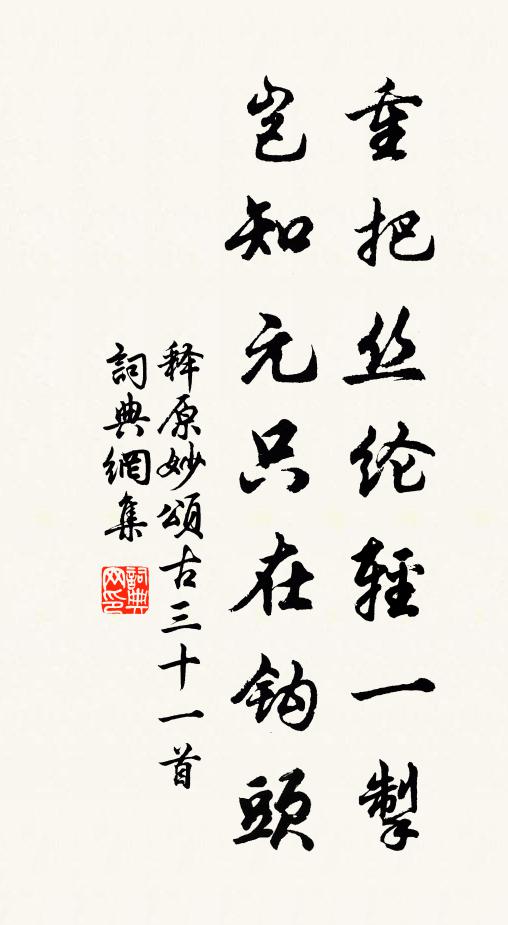 重把丝纶輕一掣
岂知元只在鈎頭
释原妙頌古三十一首
詞典網集
詞典網印